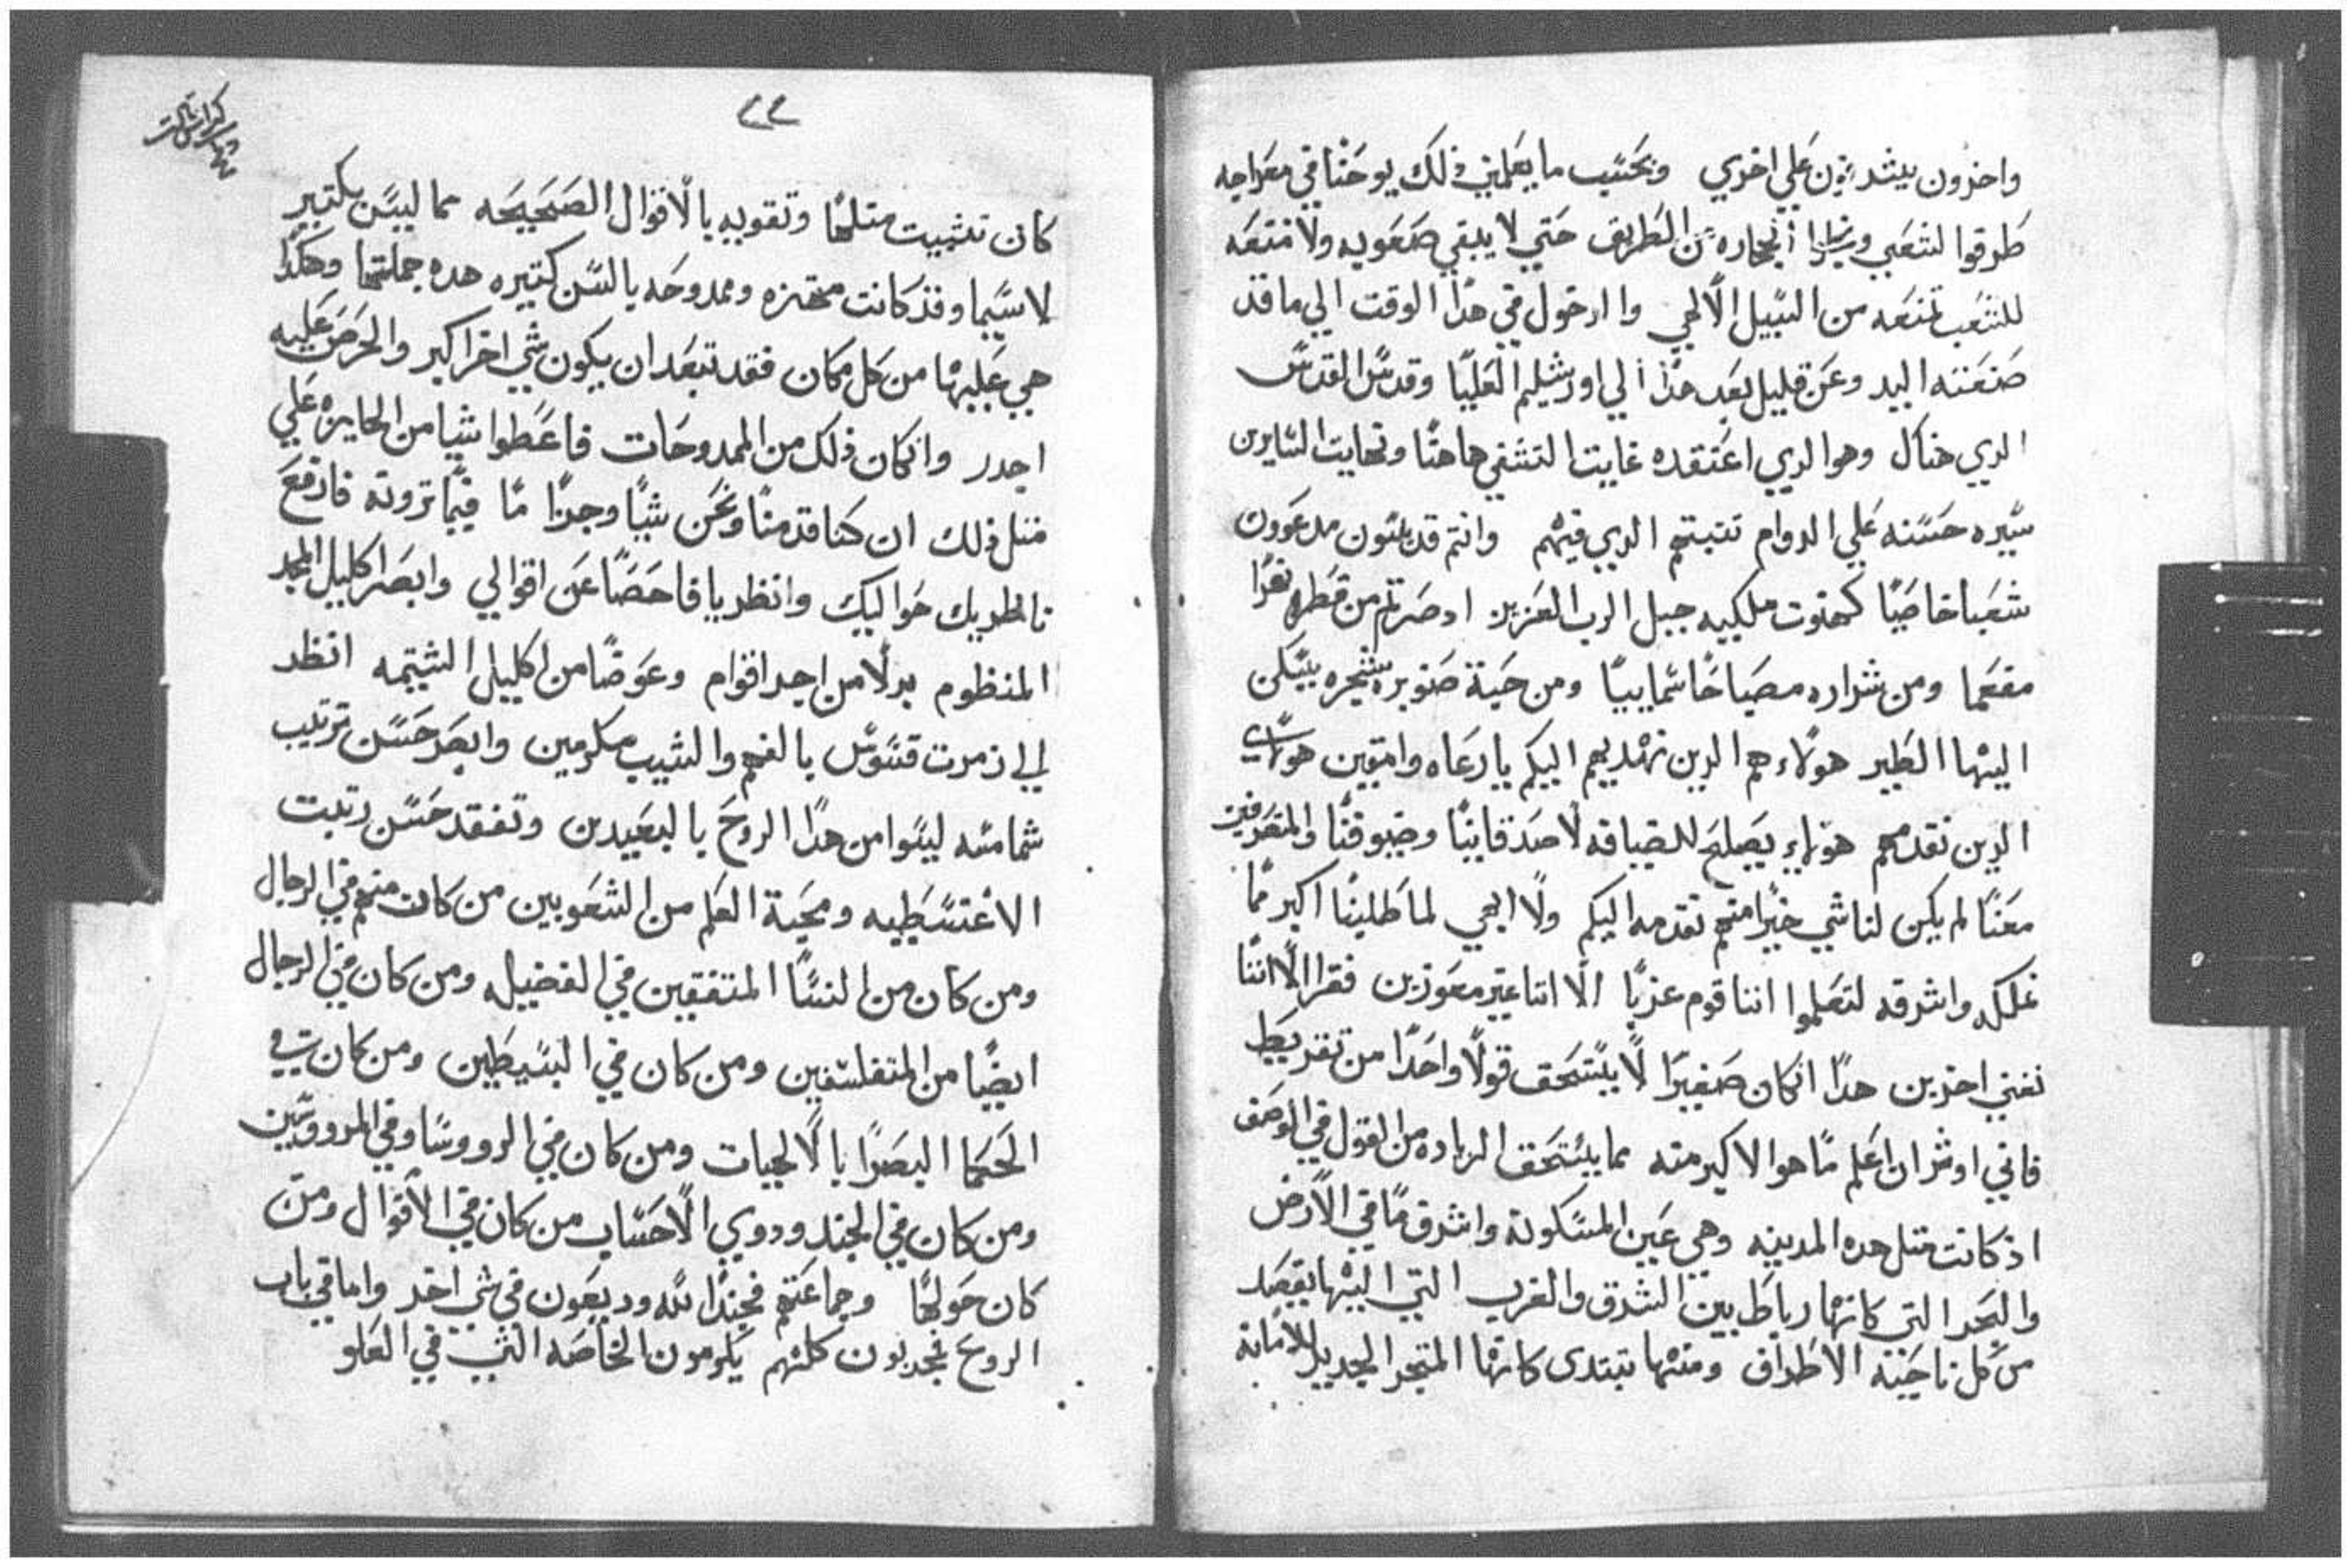 واخرون يبشرون علي اخري وبحسب ما يعلمني ذلك يوحنا في معراجه
طرقوا لشعبي وميلوا الحجاره من الطريق حتي لا يبقي صعوبه ولا منعه
للشعب تمنعه من السبيل الالهي والدخول في هذا الوقت الي ما قد
صنعته اليد وعن قليل بعد هذا الي اورشليم العليا وقدس القدس
الدي هناك وهو الدي اعتقده غايت التشقي هاهنا ونهايت السايرين
سيره حسنه علي الدوام تتبتهم الدي فيهم وانتم قديسون مدعوون
شعبا خاصيا كهنوت ملكيه جبيل الرب العزيز ادصرتم من قطره نهرا
مفعما ومن شراره مصباحا سماييا ومن حبة صنوبره شجره يسكن
اليها الطير هولاء هم الدين نهديهم اليكم يا رعاه وامقين هولاي
الدين نقدمهم هولاء يصلح للضيافه لاصدقاينا وضيوفنا والمتعرفين
معنا لم يكن لنا شي خيرا منهم نقدمه اليكم ولا ابهي لما طلبنا اكبر مما
نملكه واشرقه لتعلموا اننا قوم غربا الا اننا غير معوزين فقرا الا اننا
نغني اخرين هدا ان كان صغيرا لا يستحق قولا واحدا من تقريظ
فاني اوثران اعلم ما هو الاكبر منه مما يستحق الزياده من القول في الوصف
اذ كانت متل هده المدينه وهي عين المسكونة واشرق ما في الارض
والبحر التي كانها رباط بين الشرق والغرب التي اليها يقصد
من كل ناحيه الاطراف ومنها تبتدي كانها المتجر الجديد للامانه
٢٢
كان تثبيت متلها وتقويه بالاقوال الصحيحه مما ليس بكتير
لا سيما وقد كانت محتزه وممدوحه بالسن كتيره هده جملتها وهكذا
هي عليها من كل مكان فقد تبعد ان يكون شي اخر اكبر والحرص عليه
اجدر وان كان ذلك من الممدوحات فاعطوا شيا من الجايزه علي
متل ذلك ان كنا قدمنا ونحن شيا وجزا ما فيما ترونه فارفع
ناظريك حواليك وانظر يا فاحصا عن اقوالي وابصر اكليل المجد
المنظوم بدلا من اجد اقوام وعوضا من اكليل الشيتمه انظر
الي زمرت قسوس بالفهم والشيب مكرمين وابصر حسن ترتيب
شمامسه ليسوا من هدا الروح بالبعيدين وتفقد حسن رتبت
الاغتسطيه ومحبة العلم من الشعوبيين من كان منهم في الرجال
ومن كان من النسا المتفقين في الفضيله ومن كان في الرجال
ايضا من المتفلسفين ومن كان في البسيطين ومن كان في
الحكما البصرا بالالهيات ومن كان في الرووسا وفي المرووسين
ومن كان في الجند ودوي الاحساب من كان في الاقوال ومن
كان حولها وجماعتهم فجندا لله وديعون في شي اخر واما في باب
الروح فجديون كلهم يكرمون الخاصه التي في العلو